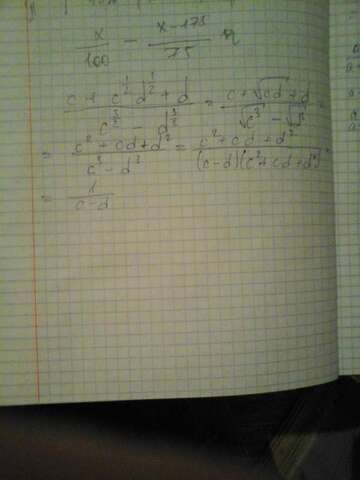 x/100 - x-175/75
c + c^1/2 d^1/2 + d / c^3/2 - d^3/2 = c+√cd+d / √c^3 - √d^3 =
= c^2 + cd + d^2 / c^3 - d^3 = c^2 + cd + d^2 / (c-d)(c^2+cd+d^2) =
= 1 / c-d